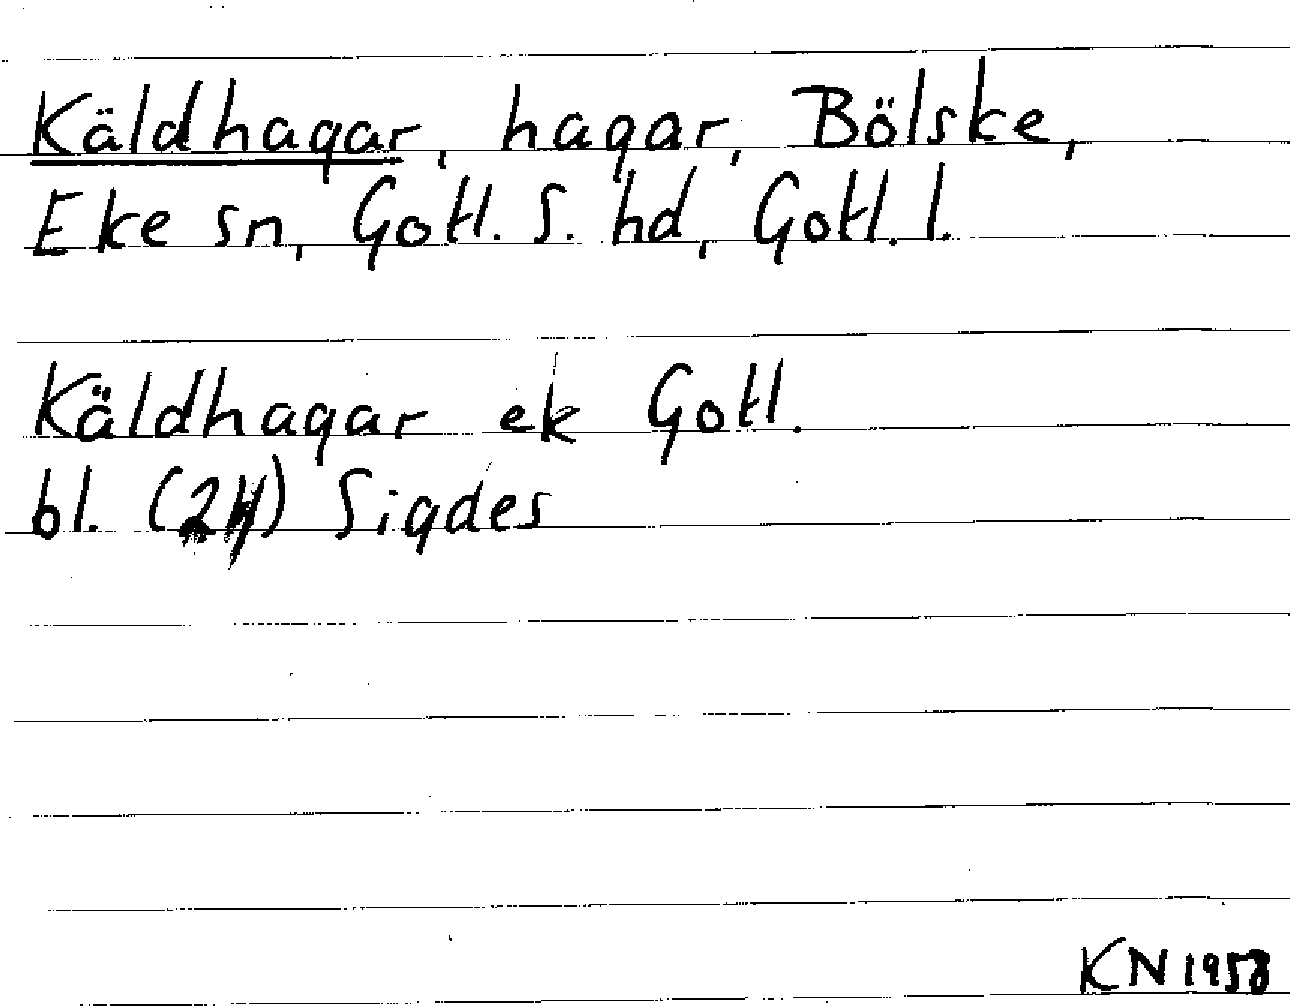 Käldhagar, hagar, Bölske,
Eke sn, Gotl. S. hd, Gotl. l.
Käldhagar ek Gotl.
bl. (24) Sigdes
KN 1958